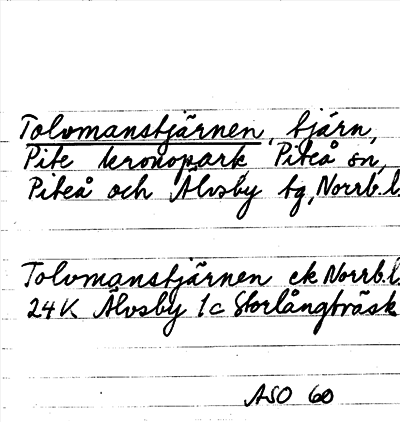 Tolvmanstjärnen, tjärn,
Pite kronopark Piteå sn,
Piteå och Älvsby tg, Norrb.l.
Tolvmanstjärnen ek Norrb.l.
24K Älvsby 1c Storlångträsk
ASO 60